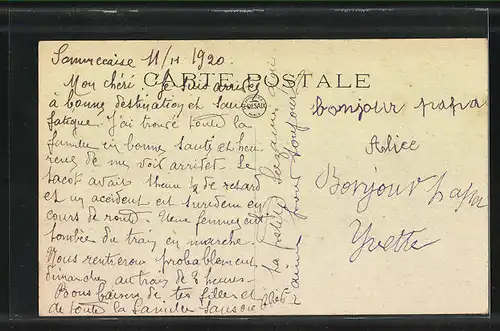 Sommecaise 11/11 1920.
Mon chéri. Je suis arrivée
CARTE POSTALE
à bonne destination et sans
fatigue. J'ai trouvé toute la
famille en bonne santé et heu
reuse de me voir arrider. Le
tacot avait 1 heure ½ de retard
et un accident est survenu en
cours de route. Une femme est
tombée du train en marche.
Nous rentrerons probablement
dimanche au train de 8 heures.
Bons baisers de tes filles et
de toute la famille sans
bonjour papa
Alice
Bonjour papa
Yvette
la petite
aime pour toujours